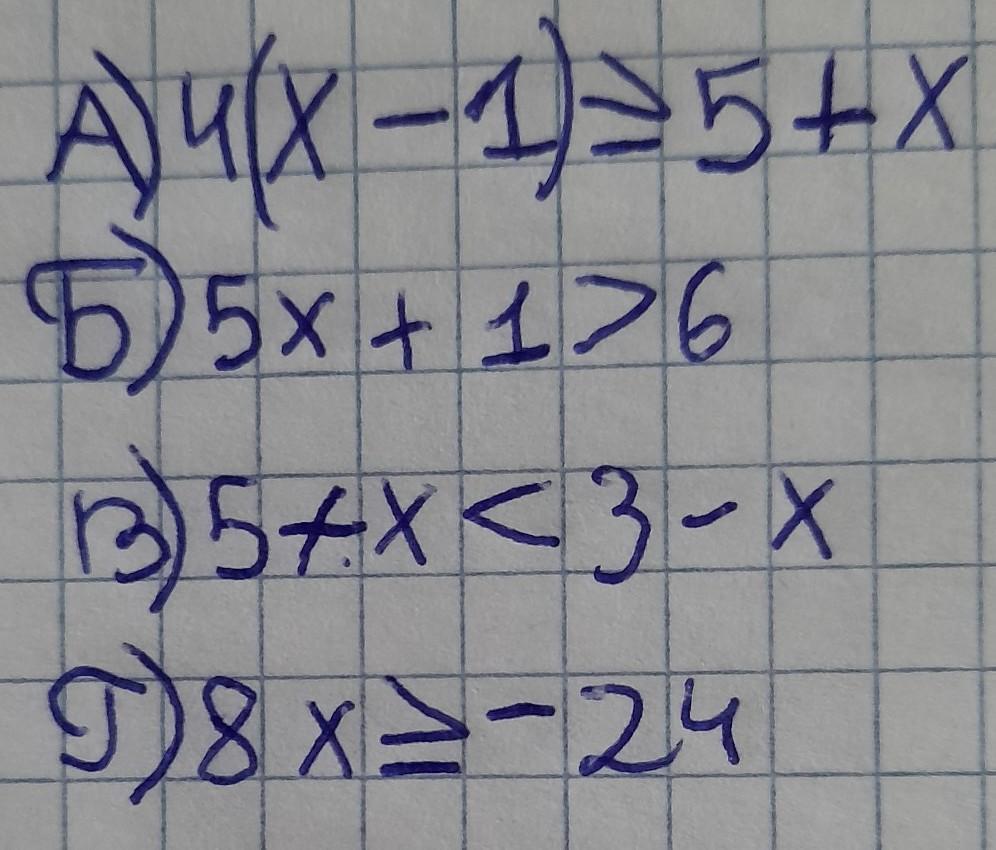 А) 4(x - 1) ≥ 5 + x
Б) 5x + 1 > 6
В) 5 + x < 3 - x
Г) 8x ≥ - 24